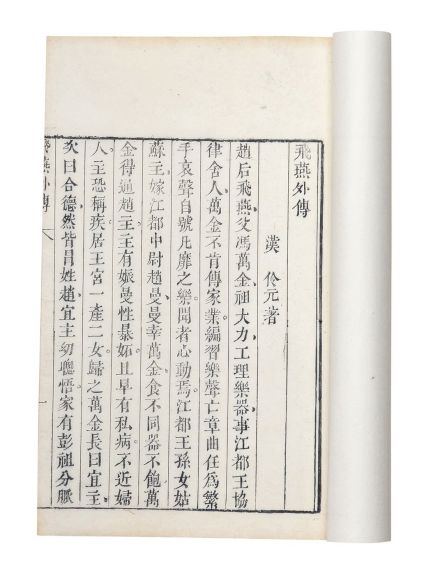 飛燕外傳
漢　伶元著
趙后飛燕父馮萬金祖大力工理樂器事江都王協
律舍人萬金不肯傳家業編習樂聲亡章曲任爲繁
手哀聲自號凡靡之樂聞者心動焉江都王孫女姑
蘇主嫁江都中尉趙曼曼幸萬金食不同器不飽萬
金得通趙主主有娠曼性暴妬且早有私病不近婦
人主恐稱疾居王宮一產二女歸之萬金長曰宜主
次曰合德然皆冐姓趙宜主幼聰悟家有彭祖分脈
燕外傳
一